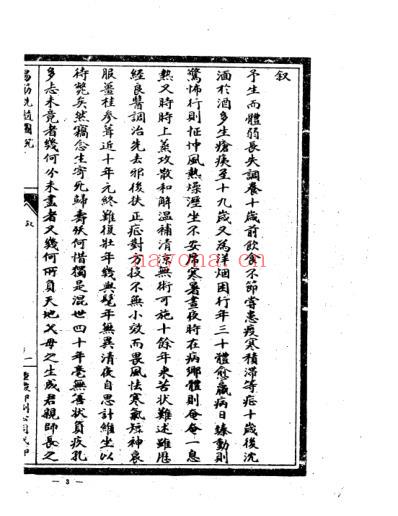 叙
予生而體弱長失調養十歲前飲食不節嘗患疫寒積滯等症十歲後沈
湎於酒多生瘡痍至十九歲又為洋烟困行年三十體愈羸病日臻動則
驚怖行則怔忡風熱燥溼坐不安席寒暑晝夜時在病鄉體則奄奄一息
熱又時時上蒸攻散和解溫補清涼無術可施十餘年來苦狀難述雖歷
經良醫調治先去邪後扶正症對方投不無小效而畏風怯寒氣短神衰
服薑桂參茸近十年元終難復壯年幾與髦年無異清夜自思計維坐以
待斃矣然竊念生寄死歸壽殀何惜獨是混世四十年毫無善狀負疚孔
多志未竟者幾何分未盡者又幾何所負天地父母之生成君親師長之
易筋洗髓圖說
叙
— 3 —
nayona.cn